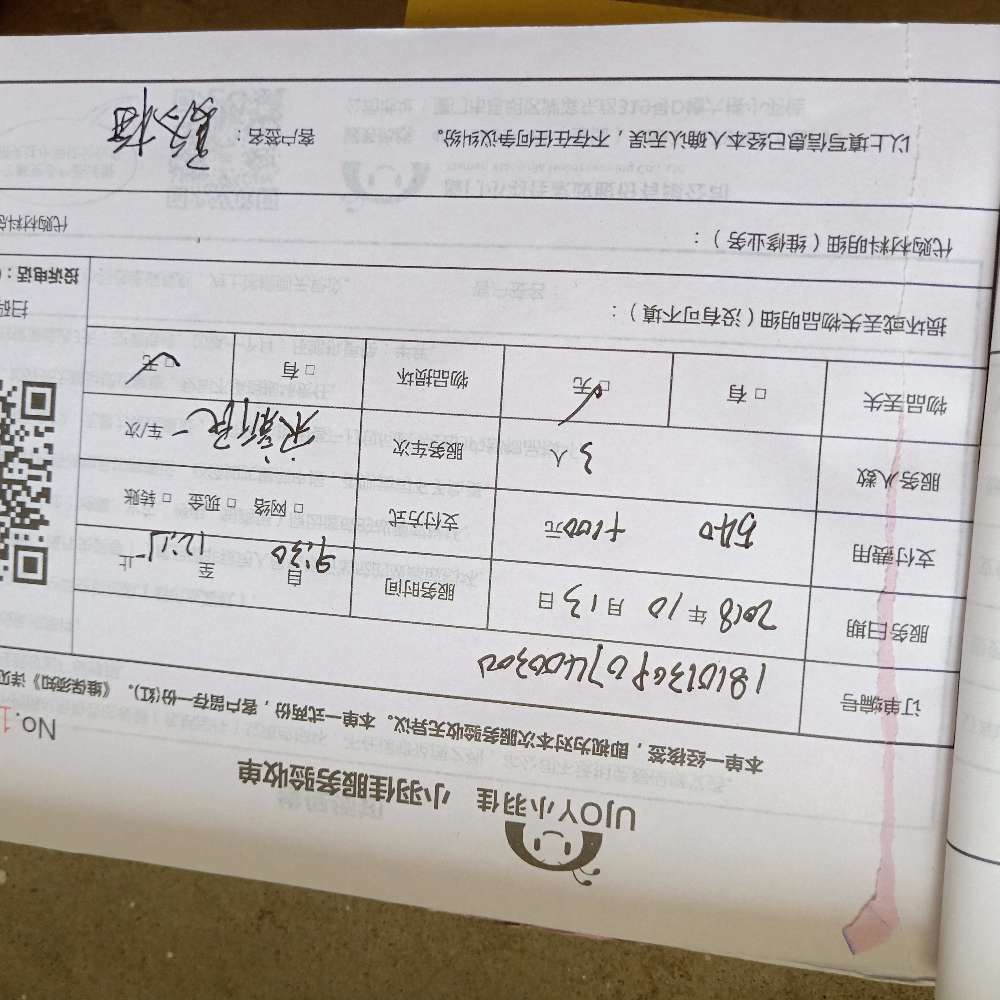 UJOY小羽佳 小羽佳服务验收单
No.1
本单一经核签，即视为对本次服务验收无异议。本单一式两份，客户留存一份(红)。《维保须知》详见
订单编号 1810130907400300
服务日期 2018年10月13日 服务时间 自9:30至12:15止
支付费用 540 +100元 支付方式 □网络 □现金 □转账
服务人数 3人 服务车次 一车/次
物品丢失 □有 □无 物品损坏 □有 □无
损坏或丢失物品明细（没有可不填）：
扫码
投诉电话：
代购材料明细（维修业务）：
代购材料总
以上填写信息已经本人确认无误，不存在任何争议纠纷。 客户签名：